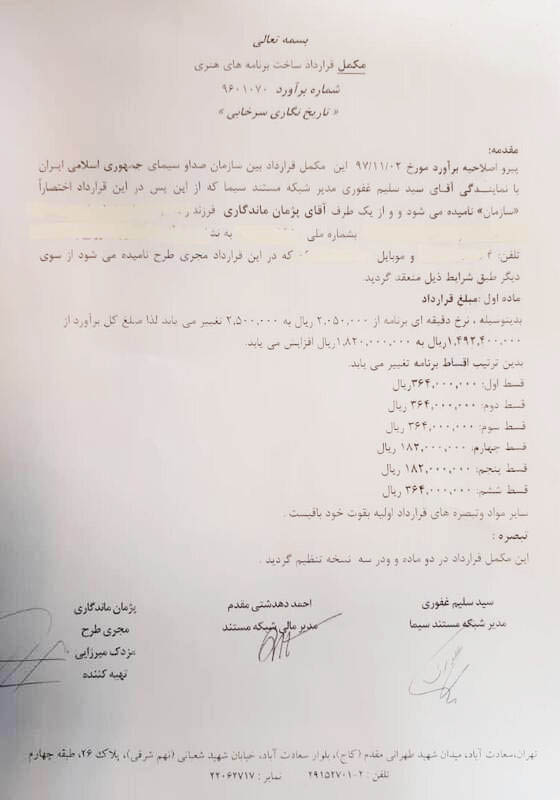 بسمه تعالی
مکمل قرارداد ساخت برنامه های هنری
شماره برآورد ۹۶۰۱۰۷۰
« تاریخ نگاری سرخابی »
مقدمه:
پیرو اصلاحیه برآورد مورخ ۹۷/۱۱/۰۲ این مکمل قرارداد بین سازمان صداو سیمای جمهوری اسلامی ایران
با نمایندگی آقای سید سلیم غفوری مدیر شبکه مستند سیما که از این پس در این قرارداد اختصاراً
«سازمان» نامیده می شود و و از یک طرف آقای پژمان ماندگاری فرزند
بشماره ملی
تلفن: و موبایل که در این قرارداد مجری طرح نامیده می شود از سوی
دیگر طبق شرایط ذیل منعقد گردید.
ماده اول :مبلغ قرارداد
بدینوسیله ، نرخ دقیقه ای برنامه از ۲،۰۵۰،۰۰۰ ریال به ۲,۵۰۰,۰۰۰ تغییر می یابد لذا مبلغ کل برآورد از
۱,۴۹۲,۴۰۰,۰۰۰ریال به ۱,۸۲۰,۰۰۰,۰۰۰ریال افزایش می یابد.
بدین ترتیب اقساط برنامه تغییر می یابد.
قسط اول: ۳۶۴,۰۰۰,۰۰۰ریال
قسط دوم: ۳۶۴,۰۰۰,۰۰۰ ریال
قسط سوم: ۳۶۴,۰۰۰,۰۰۰ ریال
قسط چهارم: ۱۸۲,۰۰۰,۰۰۰ ریال
قسط پنجم: ۱۸۲,۰۰۰,۰۰۰ ریال
قسط ششم: ۳۶۴,۰۰۰,۰۰۰ ریال
سایر مواد وتبصره های قرارداد اولیه بقوت خود باقیست .
تبصره :
این مکمل قرارداد در دو ماده و ودر سه نسخه تنظیم گردید .
سید سلیم غفوری
مدیر شبکه مستند سیما
احمد دهدشتی مقدم
مدیر مالی شبکه مستند
پژمان ماندگاری
مجری طرح
مزدک میرزایی
تهیه کننده
تهران،سعادت آباد، میدان شهید طهرانی مقدم (کاج)، بلوار سعادت آباد، خیابان شهید شعبانی (نهم شرقی)، پلاک ۲۶، طبقه چهارم
تلفن : ۲-۲۹۱۵۲۷۰۱ نمابر : ۲۲۰۶۲۷۱۷